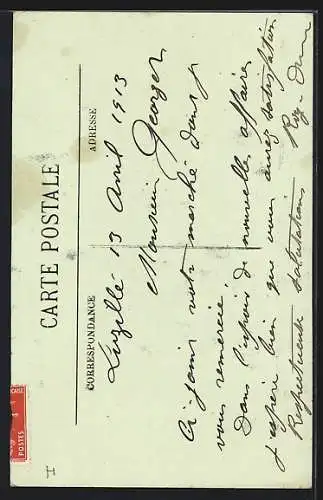 CARTE POSTALE
CORRESPONDANCE
ADRESSE
Luzillé 13 Avril 1913
Monsieur Georget
Ci-joint votre marché dont je
vous remercie.
Dans l'espoir de nouvelles affaires
j'espère bien que vous aurez satisfaction
Respectueuse salutations
POSTES
I